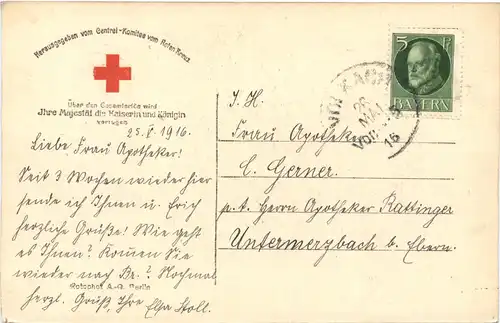 Herausgegeben vom Central-Komitee vom Roten Kreuz
Über den Gesamterlös wird
Ihre Majestät die Kaiserin und Königin
verfügen
25. V. 1916.
Liebe Frau Apotheker!
Seit 3 Wochen wieder hier
sende ich Ihnen u. Erich
herzliche Grüße! Wie geht
es Ihnen? Kommen Sie
wieder nach Br.? Nochmal
herzl. Gruß, Ihre Elsa Stoll.
Rotophot A.-G. Berlin
5 5
BAYERN
26
MAI
VORM
16
I. H.
Frau Apotheker
C. Gerner.
p. t. Herrn Apotheker Rattinger
Untermerzbach b. Ebern.